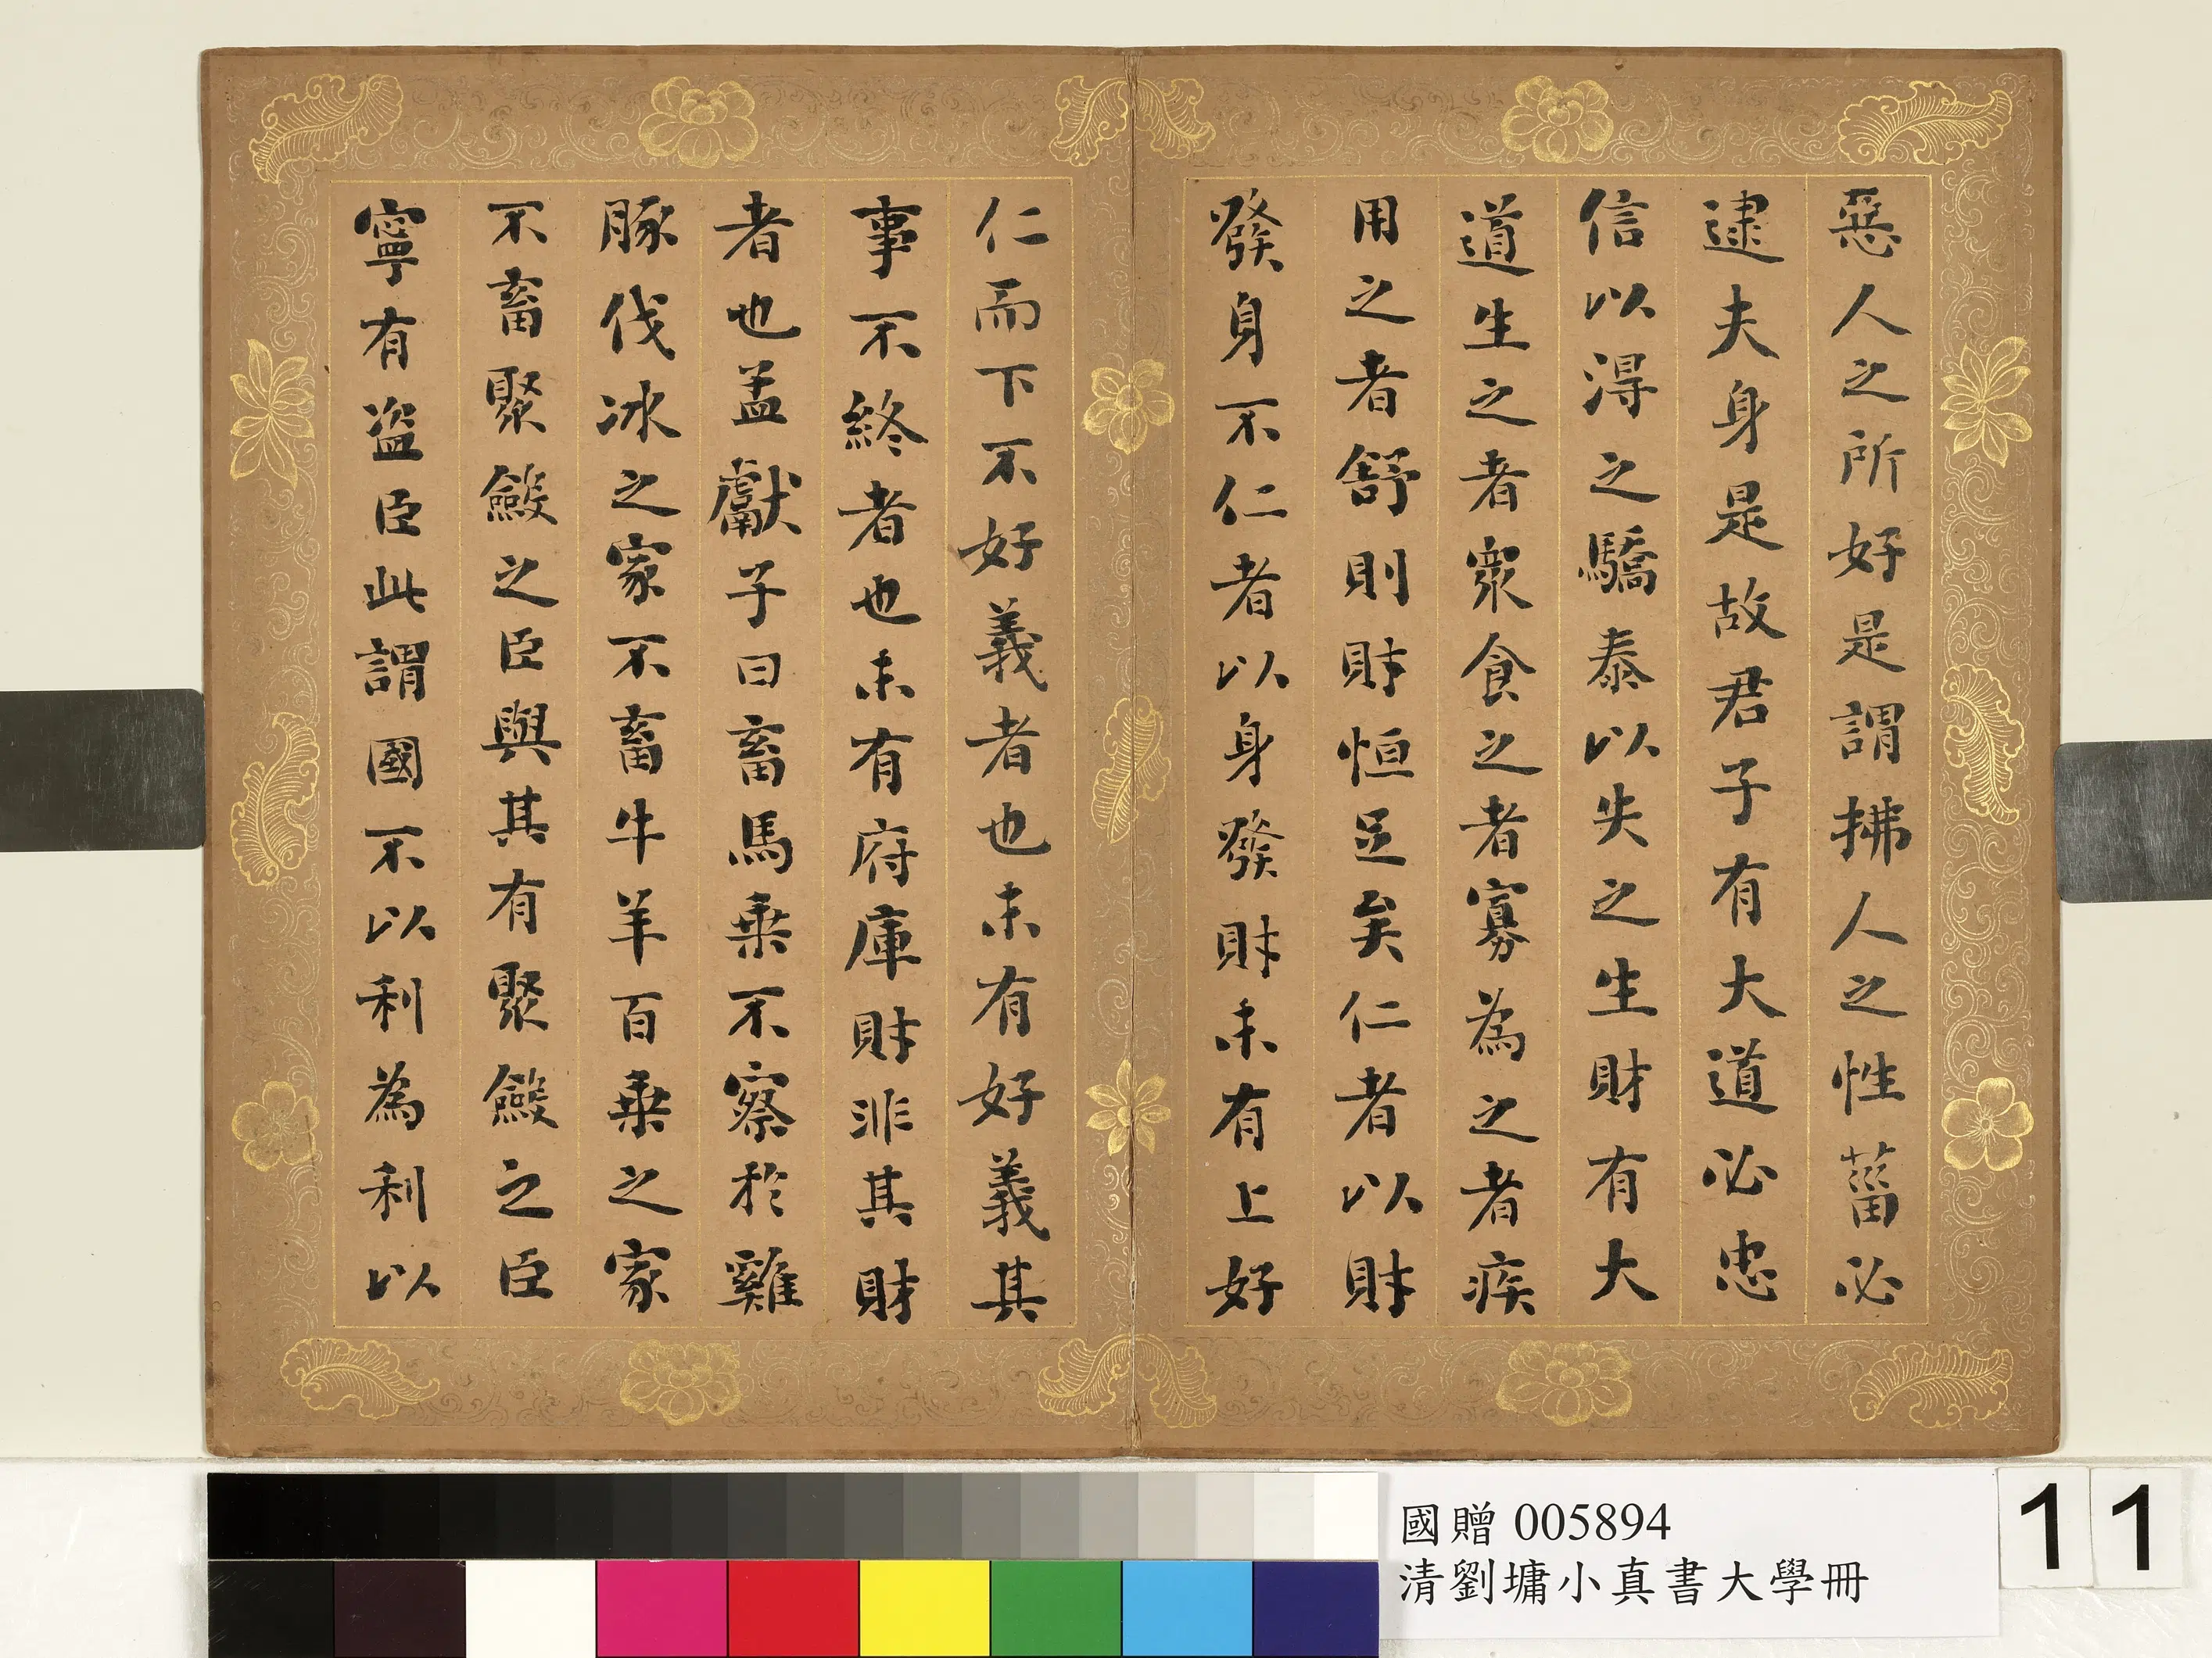 惡人之所好是謂拂人之性菑必
逮夫身是故君子有大道必忠
信以得之驕泰以失之生財有大
道生之者衆食之者寡為之者疾
用之者舒則財恒足矣仁者以財
發身不仁者以身發財未有上好
仁而下不好義者也未有好義其
事不終者也未有府庫財非其財
者也孟獻子曰畜馬乗不察於雞
豚伐冰之家不畜牛羊百乗之家
不畜聚斂之臣與其有聚斂之臣
寧有盜臣此謂國不以利為利以
國贈 005894
清劉墉小真書大學冊
11